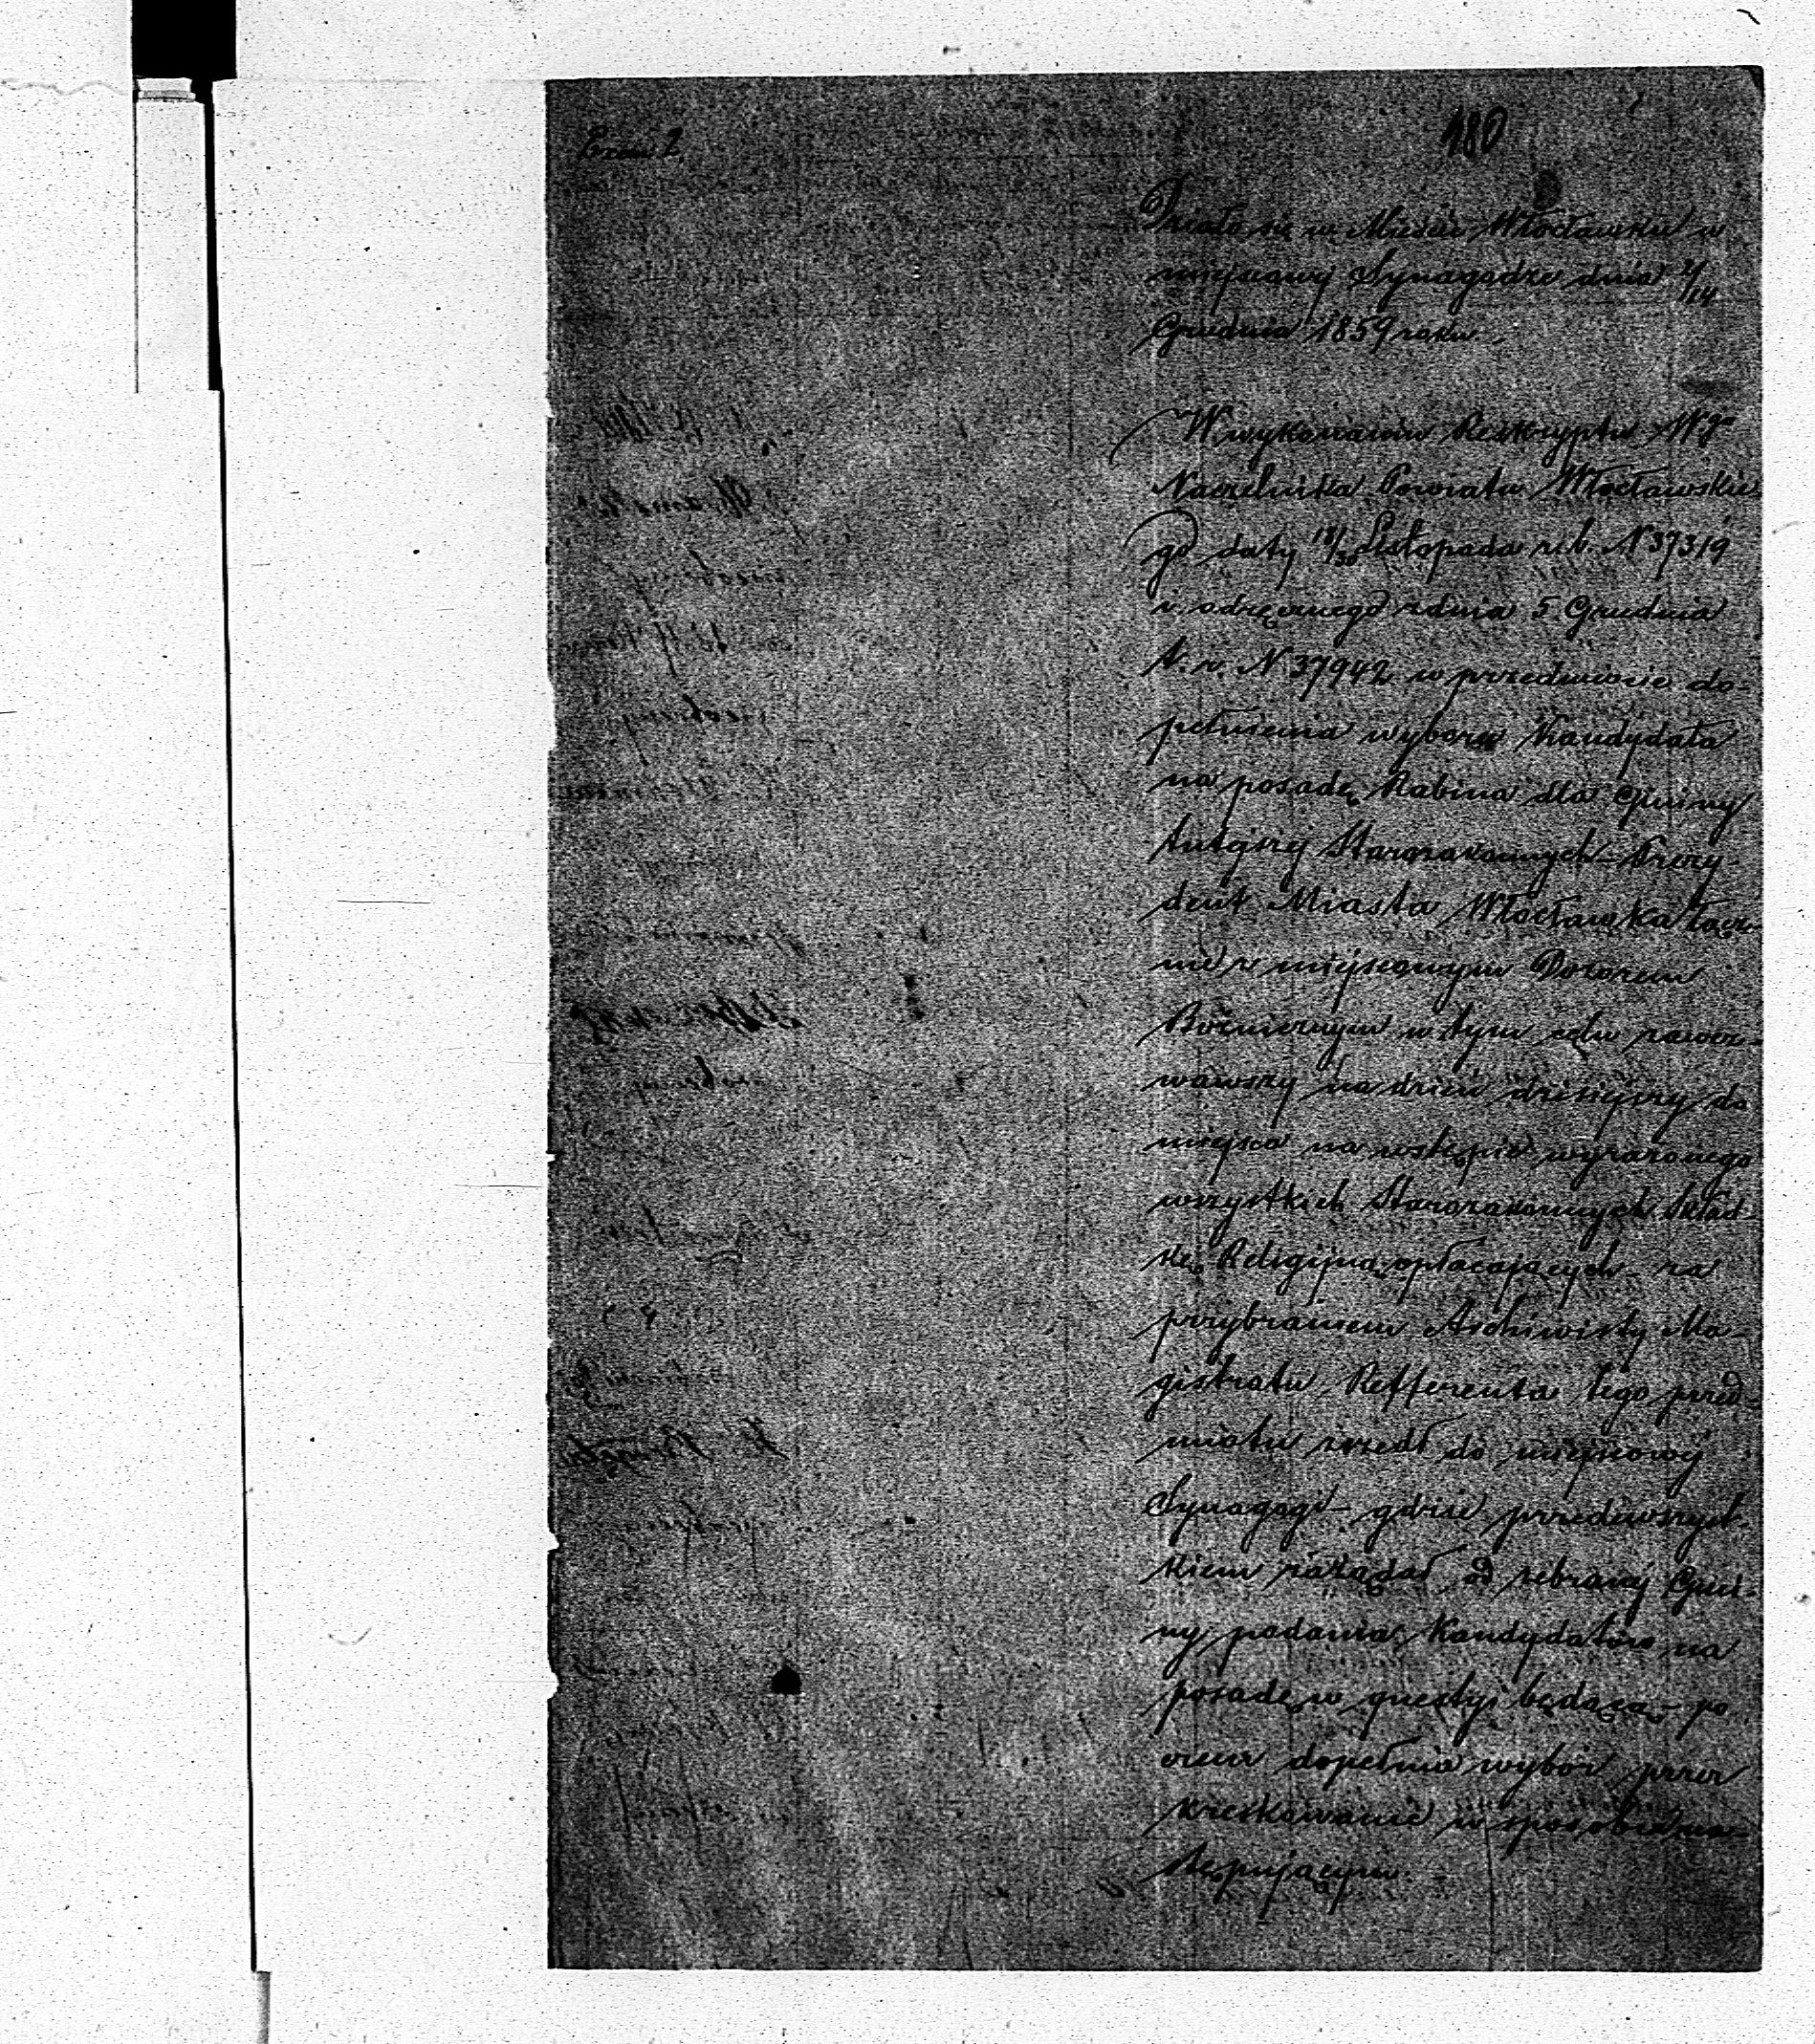 180
Działo się w Mieście Włocławku w
miejscowej Synagodze dnia 2/14
Grudnia 1859 roku.
W wykonaniu Reskryptu Wgo
Naczelnika Powiatu Włocławskie
go daty 18/30 Listopada r.b. N 37319
i odręcznego z dnia 5 Grudnia
t. r. N 37942 w przedmiocie do-
pełnienia wyboru Kandydata
na posadę Rabina dla Gminy
tutejszej Starozakonnych - Prezy-
dent Miasta Włocławka łącz-
nie z miejscowym Dozorem
Bóżnicznym w tym celu zawez-
wawszy na dzień dzisiejszy do
miejsca na wstępie wyrażonego
wszystkich Starozakonnych Skład-
kę Religijną opłacających - za
przybraniem Archiwisty Ma-
gistratu Refferenta tego przed-
miotu zszedł do miejscowej
Synagogi - gdzie przedewszyst-
kiem zażądał od zebranej Gmi-
ny podania Kandydatów na
posadę w questyi będącą - po
czem dopełnia wybór przez
kreskowanie w sposobie na-
stępującym.